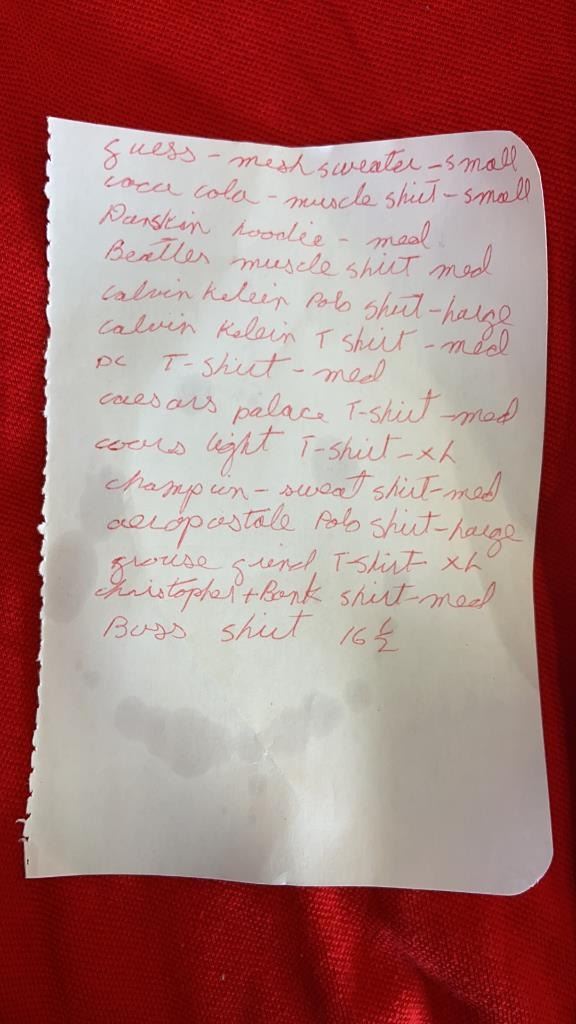 guess - mesh sweater - small
coca cola - muscle shirt - small
Danskin hoodie - med
Beatles muscle shirt med
calvin Kelein Polo shirt - harge
calvin Kelein T shirt - med
DC T-shirt - med
caesars palace T-shirt - med
coors light T-shirt - XL
champion - sweat shirt - med
aeropostale Polo shirt - harge
grouse grind T-shirt XL
christopher + Bank shirt - med
Boss shirt 16 1/2